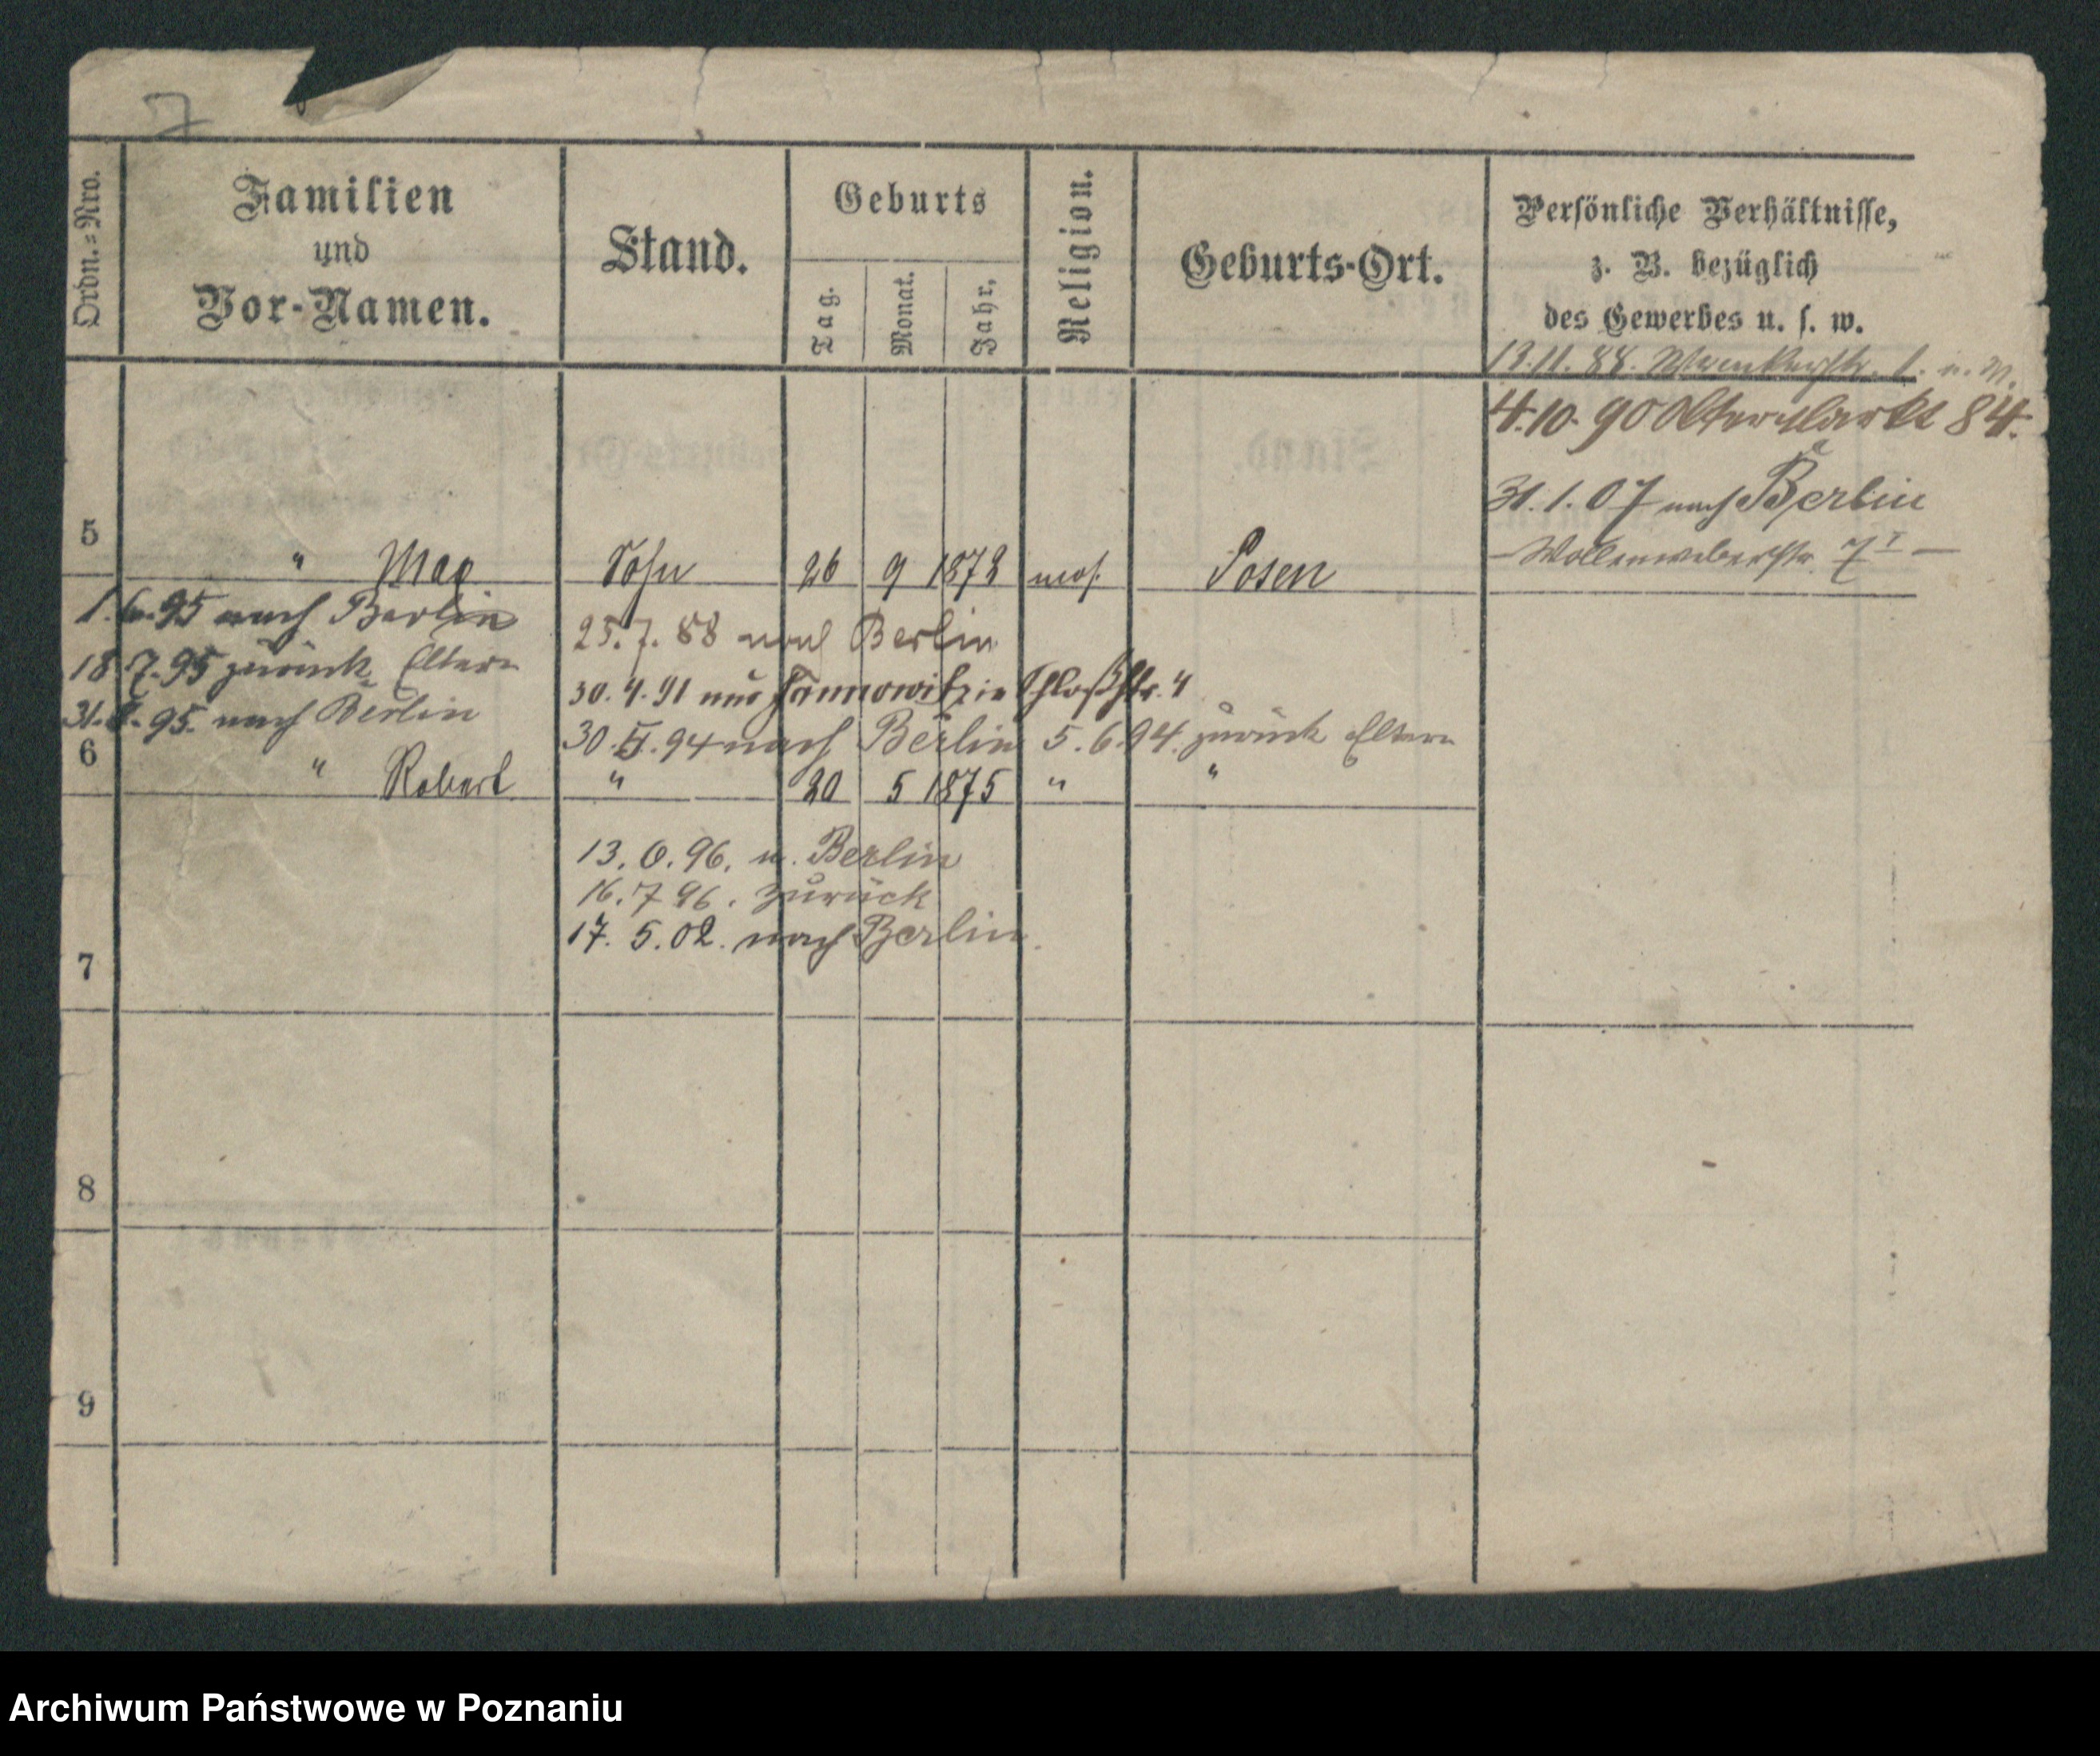 7
Ordn.=Nro.
Familien
und
Vor-Namen.
Stand.
Geburts
Tag.
Monat.
Jahr,
Religion.
Geburts-Ort.
Persönliche Verhältnisse,
z. B. bezüglich
des Gewerbes u. s. w.
13.11.88.
4.10.90 Alter Markt 84.
31.1.07 nach Berlin
Wollenweberstr. 7 I
5 " Max Sohn 26 9 1872 mos. Posen
1.6.95 nach Berlin
18.7.95 zurück Eltern
31. 95. nach Berlin
25.7.88 nach Berlin
30.4.91 aus Schloßstr. 4
30. 94 nach Berlin 5.6.94. zurück Eltern
6 " Robert " 20 5 1875 " "
13.6.96. n. Berlin
16.7 96. zurück
17. 5.02. nach Berlin.
7
8
9
Archiwum Państwowe w Poznaniu